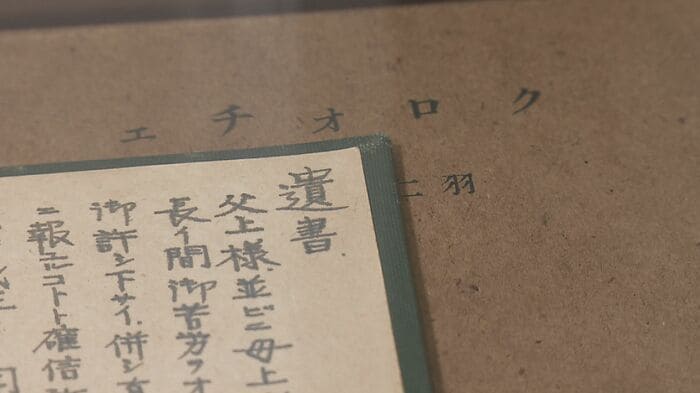 クロオチエ
羽二
遺書
父上様並ビニ母上
長イ間御苦労ヲオ
御許シ下サイ、併シ
ニ報 コトト確信